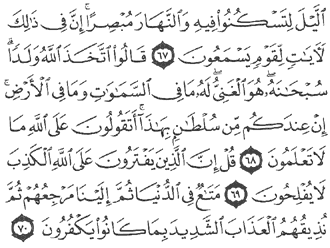 ٱلَّيْلَ لِتَسْكُنُوا۟ فِيهِ وَٱلنَّهَارَ مُبْصِرًا ۚ إِنَّ فِى ذَٰلِكَ
لَـَٔايَٰتٍ لِّقَوْمٍ يَسْمَعُونَ ٦٧ قَالُوا۟ ٱتَّخَذَ ٱللَّهُ وَلَدًا ۗ
سُبْحَٰنَهُۥ ۖ هُوَ ٱلْغَنِىُّ ۖ لَهُۥ مَا فِى ٱلسَّمَٰوَٰتِ وَمَا فِى ٱلْأَرْضِ ۚ
إِنْ عِندَكُم مِّن سُلْطَٰنٍۭ بِهَٰذَآ ۚ أَتَقُولُونَ عَلَى ٱللَّهِ مَا
لَا تَعْلَمُونَ ٦٨ قُلْ إِنَّ ٱلَّذِينَ يَفْتَرُونَ عَلَى ٱللَّهِ ٱلْكَذِبَ
لَا يُفْلِحُونَ ٦٩ مَتَٰعٌ فِى ٱلدُّنْيَا ثُمَّ إِلَيْنَا مَرْجِعُهُمْ ثُمَّ
نُذِيقُهُمُ ٱلْعَذَابَ ٱلشَّدِيدَ بِمَا كَانُوا۟ يَكْفُرُونَ ٧٠